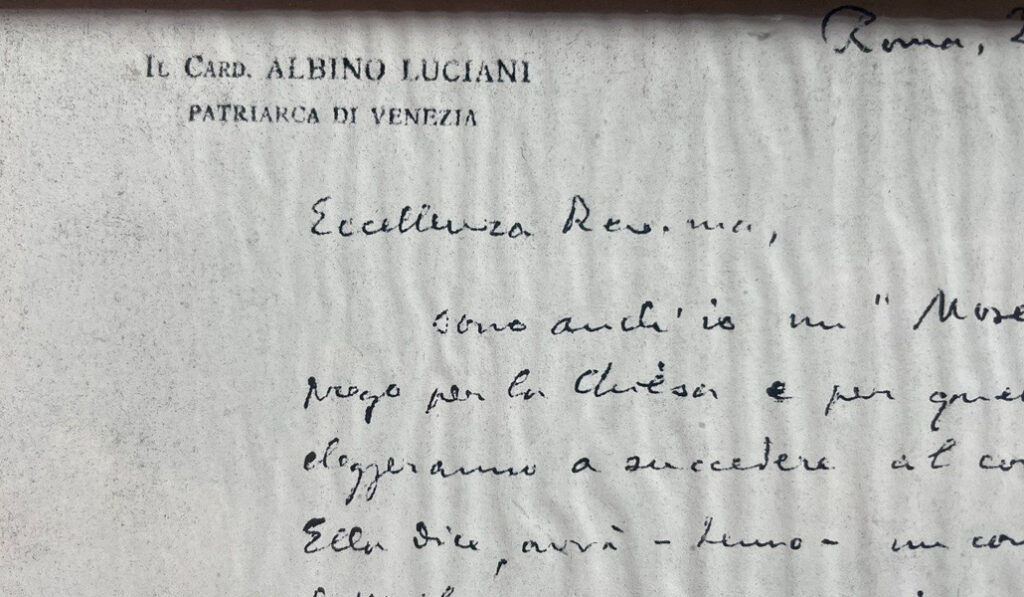 Roma, 2
IL CARD. ALBINO LUCIANI
PATRIARCA DI VENEZIA
Eccellenza Rev.ma,
sono anch'io un "Mosè
prego per la Chiesa e per
eleggeranno a succedere al
Ella dice, avrà - temo - un